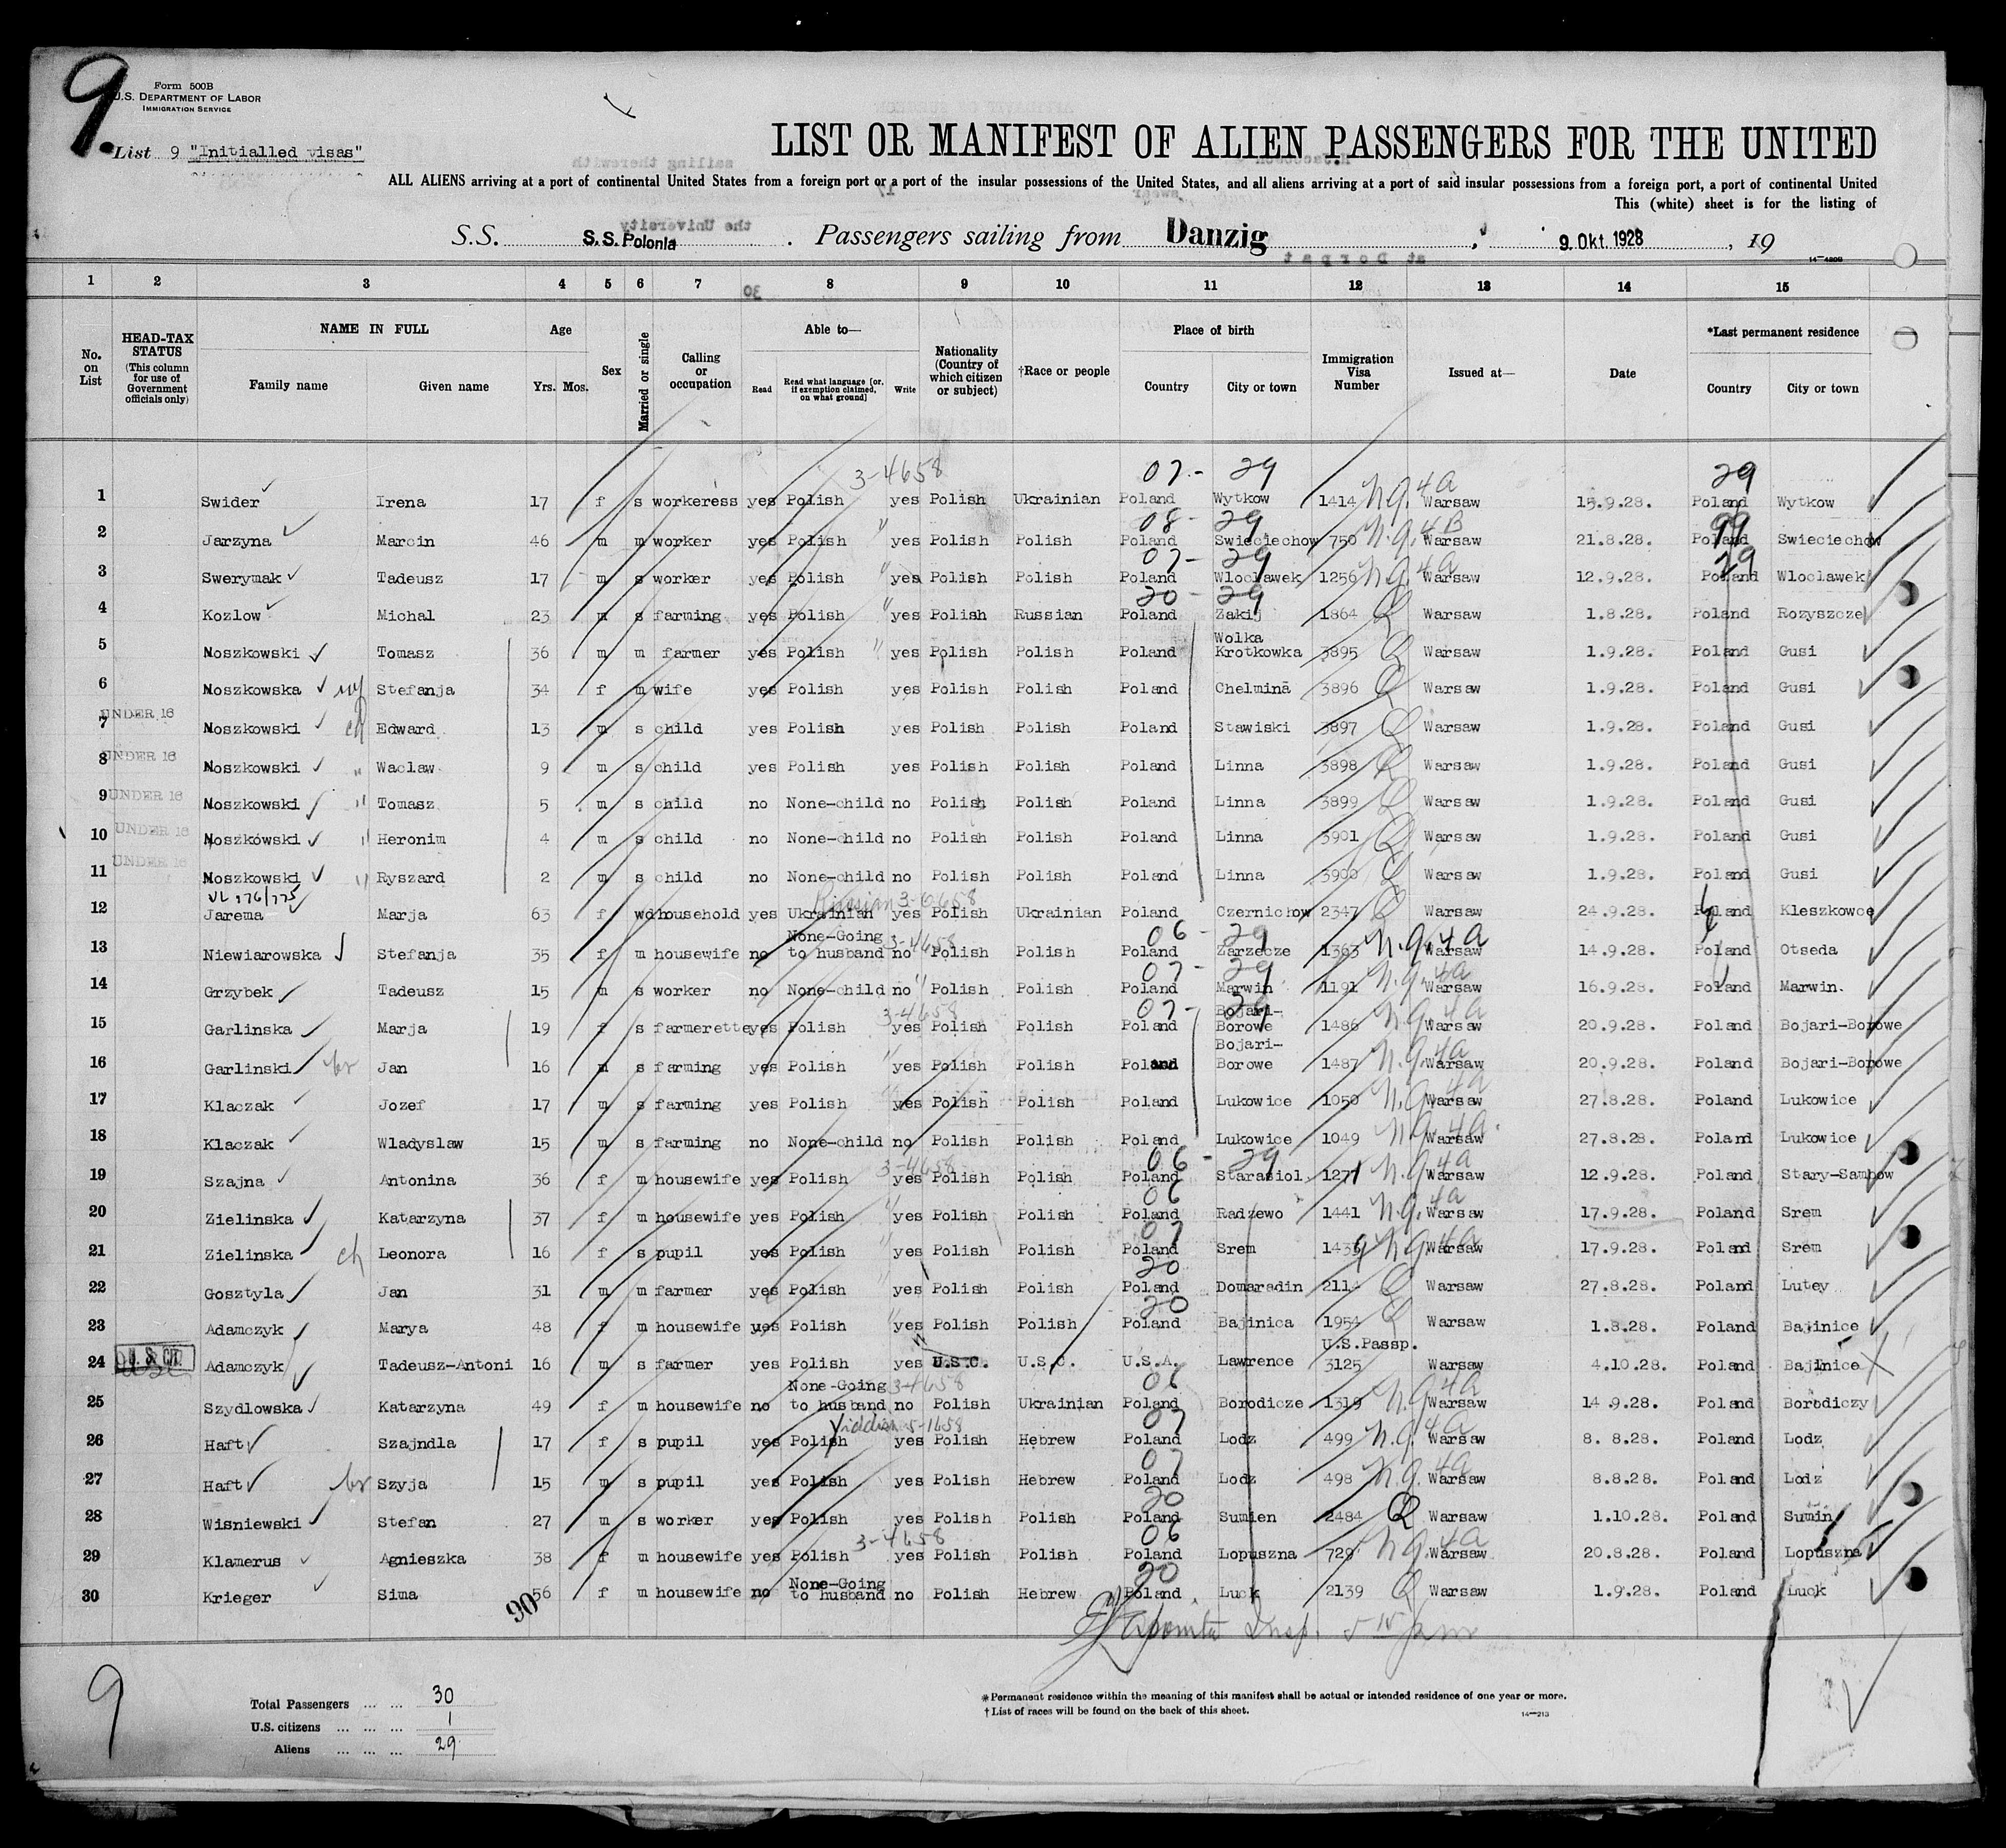 9.
Form 500B
U.S. DEPARTMENT OF LABOR
IMMIGRATION SERVICE
List 9 "Initialled visas"
LIST OR MANIFEST OF ALIEN PASSENGERS FOR THE UNITED
ALL ALIENS arriving at a port of continental United States from a foreign port or a port of the insular possessions of the United States, and all aliens arriving at a port of said insular possessions from a foreign port, a port of continental United
This (white) sheet is for the listing of
S.S. S.S. Polonia . Passengers sailing from Danzig , 9. Okt. 1928 , 19
1 2 3 4 5 6 7 8 9 10 11 12 13 14 15
No. on List HEAD-TAX STATUS (This column for use of Government officials only) NAME IN FULL Family name Given name Age Yrs. Mos. Sex Married or single Calling or occupation Able to— Read Read what language [or, if exemption claimed, on what ground] Write Nationality (Country of which citizen or subject) †Race or people Place of birth Country City or town Immigration Visa Number Issued at— Date *Last permanent residence Country City or town
3-4658 07 - 29 29
1 Swider Irena 17 f s workeress yes Polish yes Polish Ukrainian Poland Wytkow 1414 n.q. 4a Warsaw 15.9.28. Poland Wytkow
08 - 29 99
2 Jarzyna Marcin 46 m m worker yes Polish " yes Polish Polish Poland Swieciechow 750 n.q. 4B Warsaw 21.8.28. Poland Swieciechow
07 - 29 29
3 Swerymak Tadeusz 17 m s worker yes Polish " yes Polish Polish Poland Wloclawek 1256 n.q. 4a Warsaw 12.9.28. Poland Wloclawek
20 - 29
4 Kozlow Michal 23 m s farming yes Polish " yes Polish Russian Poland Zakij 1864 Q Warsaw 1.8.28. Poland Rozyszcze
5 Moszkowski Tomasz 36 m m farmer yes Polish " yes Polish Polish Poland Wolka Krotkowka 3895 Q Warsaw 1.9.28. Poland Gusi
6 Moszkowska Stefanja 34 f m wife yes Polish yes Polish Polish Poland Chelminā 3896 Q Warsaw 1.9.28. Poland Gusi
7 UNDER 16 Moszkowski ch Edward 13 m s child yes Polish yes Polish Polish Poland Stawiski 3897 Q Warsaw 1.9.28. Poland Gusi
8 UNDER 16 Moszkowski " Waclaw 9 m s child yes Polish yes Polish Polish Poland Linna 3898 Q Warsaw 1.9.28. Poland Gusi
9 UNDER 16 Moszkowski " Tomasz 5 m s child no None-child no Polish Polish Poland Linna 3899 Q Warsaw 1.9.28. Poland Gusi
10 UNDER 16 Moszkówski " Heronim 4 m s child no None-child no Polish Polish Poland Linna 3901 Q Warsaw 1.9.28. Poland Gusi
11 UNDER 16 Moszkowski " Ryszard 2 m s child no None-child no Polish Polish Poland Linna 3900 Q Warsaw 1.9.28. Poland Gusi
VL 276/775 Russian 3-6658
12 Jarema Marja 63 f wd household yes Ukrainian yes Polish Ukrainian Poland Czernichow 2347 Q Warsaw 24.9.28. Poland Kleszkowce
3-4658 06 - 29
13 Niewiarowska Stefanja 35 f m housewife no None-Going to husband no Polish Polish Poland Zarzecze 1363 n.q. 4a Warsaw 14.9.28. Poland Otseda
07 - 29
14 Grzybek Tadeusz 15 m s worker no None-child no " Polish Polish Poland Marwin 1191 n.q. 4a Warsaw 16.9.28. Poland Marwin.
3-4658 07 - 29
15 Garlinska Marja 19 f s farmerette yes Polish yes Polish Polish Poland Bojari-Borowe 1486 n.q. 4a Warsaw 20.9.28. Poland Bojari-Borowe
16 Garlinski br Jan 16 m s farming yes Polish " yes Polish Polish Poland Bojari-Borowe 1487 n.q. 4a Warsaw 20.9.28. Poland Bojari-Borowe
17 Klaczak Jozef 17 m s farming yes Polish " yes Polish Polish Poland Lukowice 1050 n.q. 4a Warsaw 27.8.28. Poland Lukowice
18 Klaczak Wladyslaw 15 m s farming no None-child no Polish Polish Poland Lukowice 1049 n.q. 4a Warsaw 27.8.28. Poland Lukowice
3-4658 06 - 29
19 Szajna Antonina 36 f m housewife yes Polish yes Polish Polish Poland Starasiol 1271 n.q. 4a Warsaw 12.9.28. Poland Stary-Sambow
06
20 Zielinska Katarzyna 37 f m housewife yes Polish " yes Polish Polish Poland Radzewo 1441 n.q. 4a Warsaw 17.9.28. Poland Srem
07
21 Zielinska ch Leonora 16 f s pupil yes Polish " yes Polish Polish Poland Srem 1439 n.q. 4a Warsaw 17.9.28. Poland Srem
20
22 Gosztyla Jan 31 m m farmer yes Polish " yes Polish Polish Poland Domaradin 2114 Q Warsaw 27.8.28. Poland Lutey
20
23 Adamczyk Marya 48 f m housewife yes Polish " yes Polish Polish Poland Bajinica 1954 Q Warsaw 1.8.28. Poland Bajinice
24 U.S. CIT. Adamczyk Tadeusz-Antoni 16 m s farmer yes Polish yes U.S.C. U.S.C. U.S.A. Lawrence U.S.Passp. 3125 Warsaw 4.10.28. Poland Bajinice
3-4658 06
25 Szydlowska Katarzyna 49 f m housewife no None-Going to husband no Polish Ukrainian Poland Borodicze 1319 n.q. 4a Warsaw 14.9.28. Poland Borodiczy
Yiddish 5-1658 07
26 Haft Szajndla 17 f s pupil yes Polish yes Polish Hebrew Poland Lodz 499 n.q. 4a Warsaw 8. 8.28. Poland Lodz
07
27 Haft br Szyja 15 m s pupil yes Polish yes Polish Hebrew Poland Lodz 498 n.q. 4a Warsaw 8.8.28. Poland Lodz
20
28 Wisniewski Stefan 27 m s worker yes Polish yes Polish Polish Poland Sumien 2484 Q Warsaw 1.10.28. Poland Sumin
3-4658 06
29 Klamerus Agnieszka 38 f m housewife yes Polish yes Polish Polish Poland Lopuszna 729 n.q. 4a Warsaw 20.8.28. Poland Lopuszna
20
30 Krieger Sima 56 f m housewife no None-Going to husband no Polish Hebrew Poland Luck 2139 Q Warsaw 1.9.28. Poland Luck
90
9
Total Passengers ... ... 30
U.S. citizens ... ... ... 1
Aliens ... ... ... 29
*Permanent residence within the meaning of this manifest shall be actual or intended residence of one year or more.
†List of races will be found on the back of this sheet.
14—213